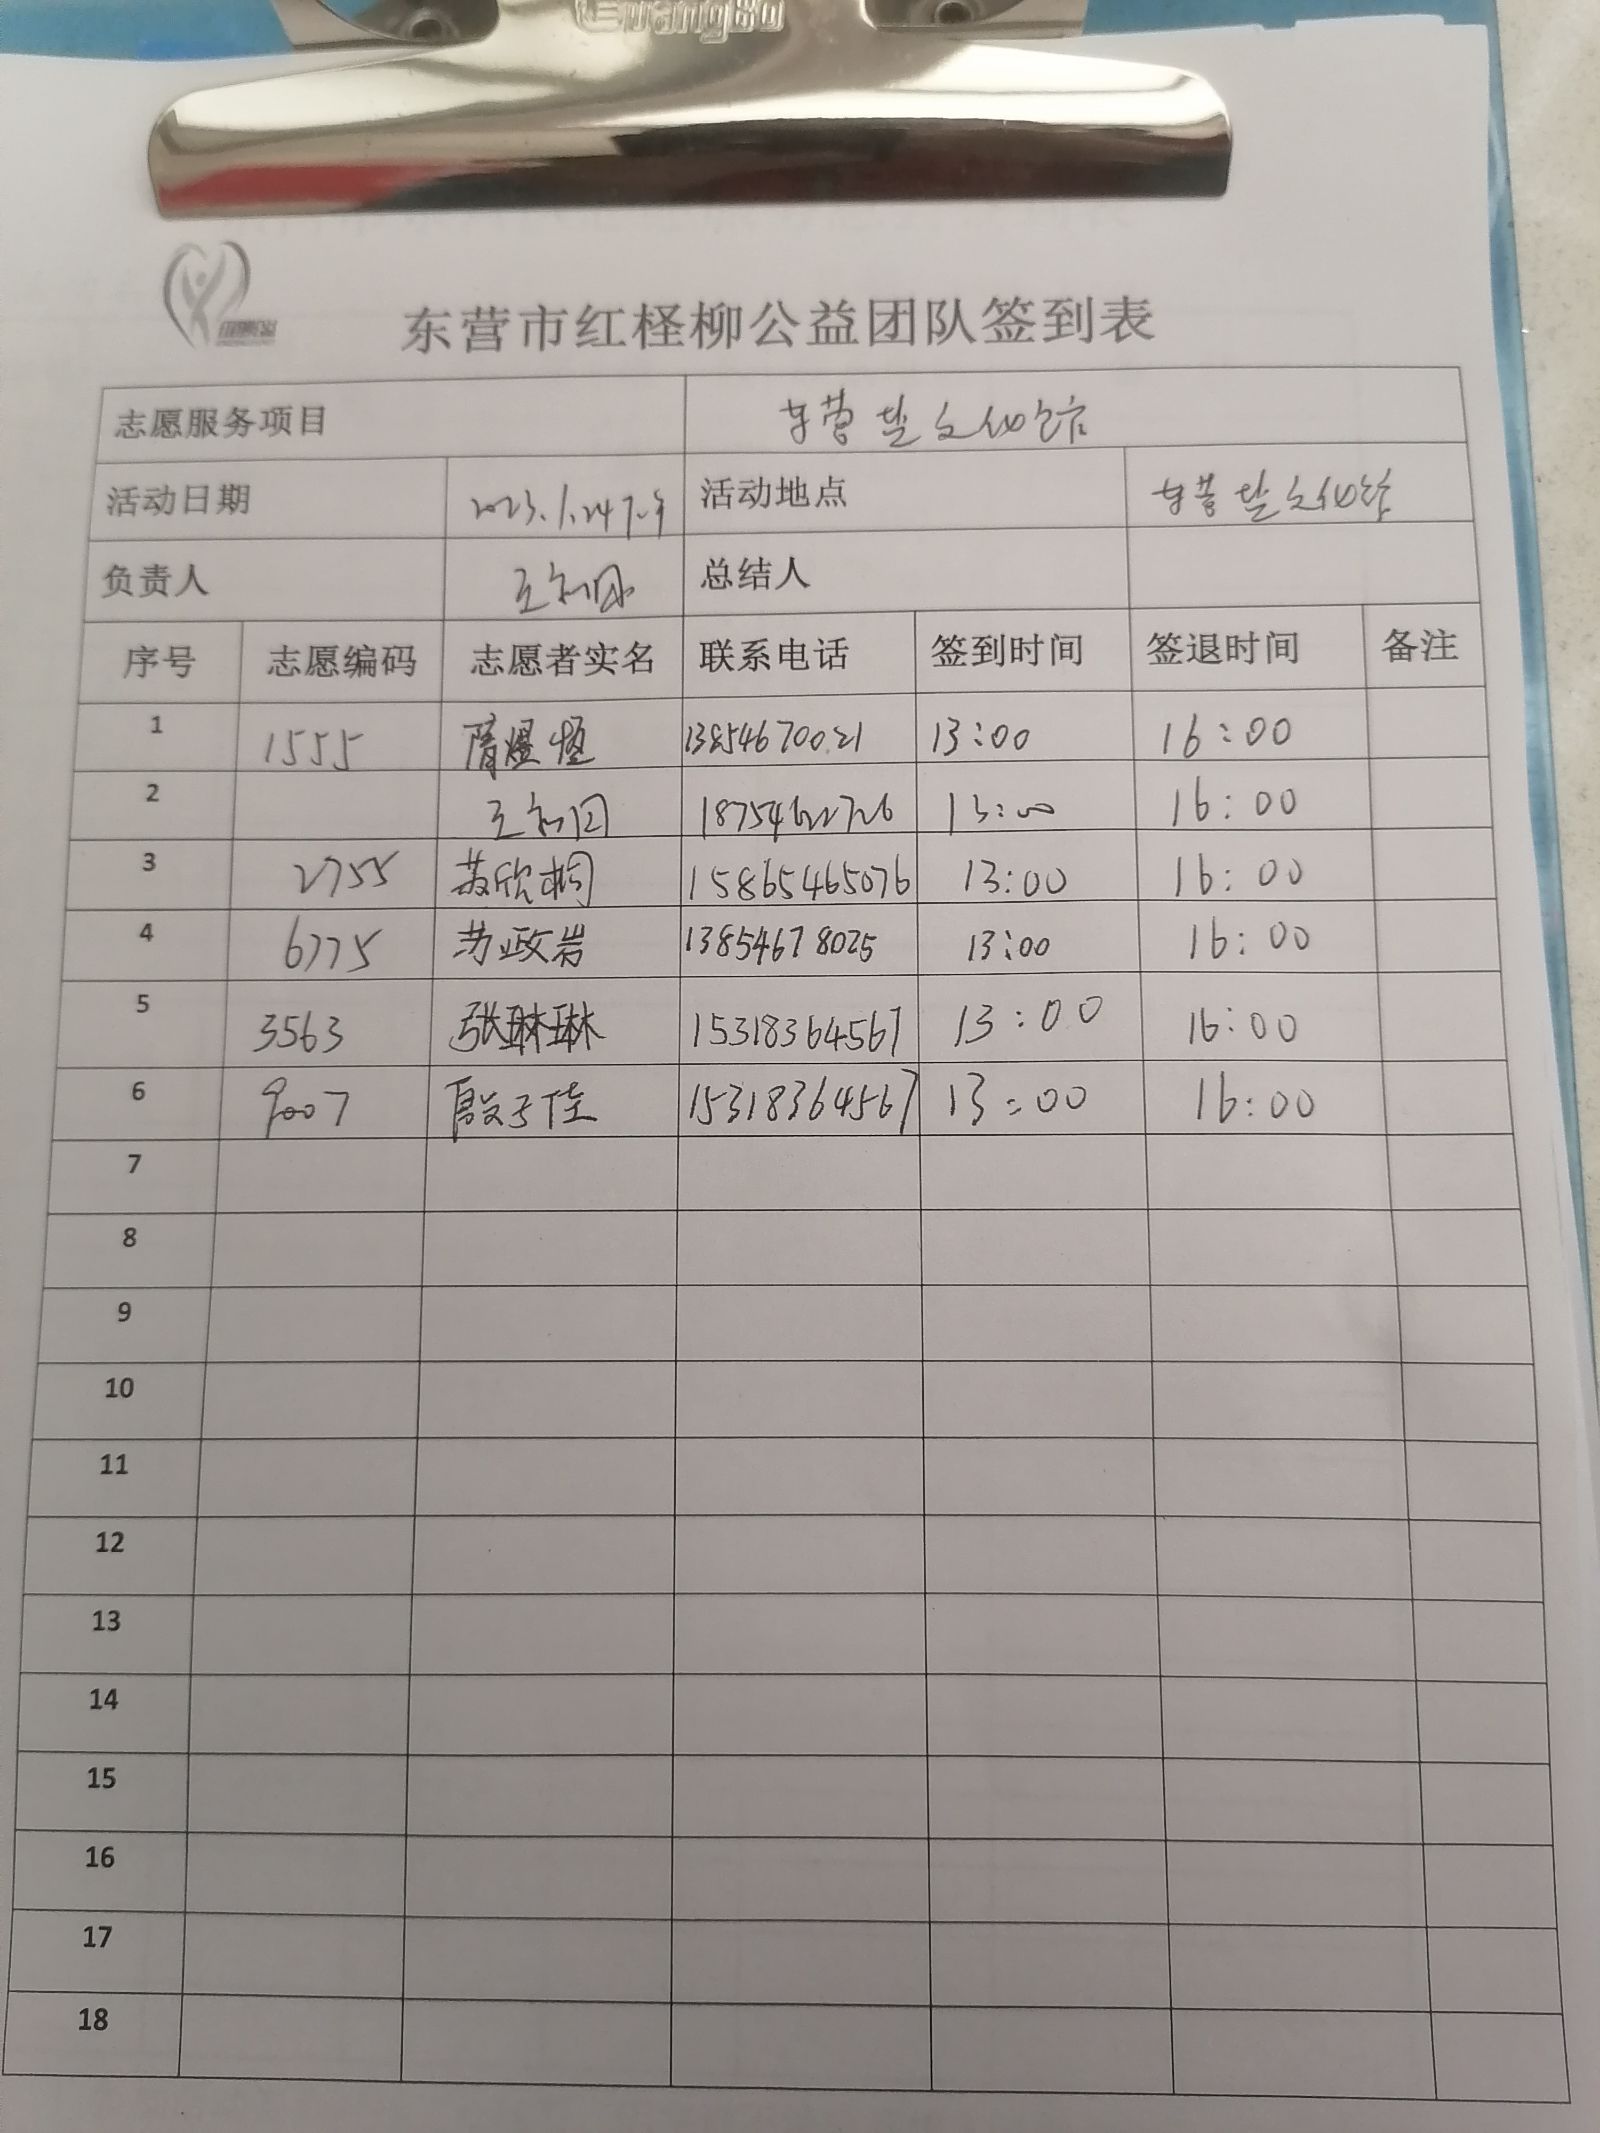 GuangBo
东营市红柽柳公益团队签到表
志愿服务项目 东营楚文化馆
活动日期 2023.1.24下午 活动地点 东营楚文化馆
负责人 总结人
序号 志愿编码 志愿者实名 联系电话 签到时间 签退时间 备注
1 1555 13854670021 13:00 16:00
2 13:00 16:00
3 2755 苏欣桐 15865465076 13:00 16:00
4 6775 苏政岩 13854678025 13:00 16:00
5 3563 张琳琳 15318364567 13:00 16:00
6 9007 殷子佳 15318364567 13:00 16:00
7
8
9
10
11
12
13
14
15
16
17
18